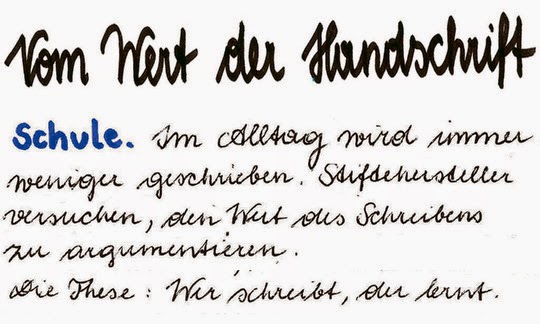 Vom Wert der Handschrift
Schule. Im Alltag wird immer
weniger geschrieben. Stiftehersteller
versuchen, den Wert des Schreibens
zu argumentieren.
Die These: Wer schreibt, der lernt.